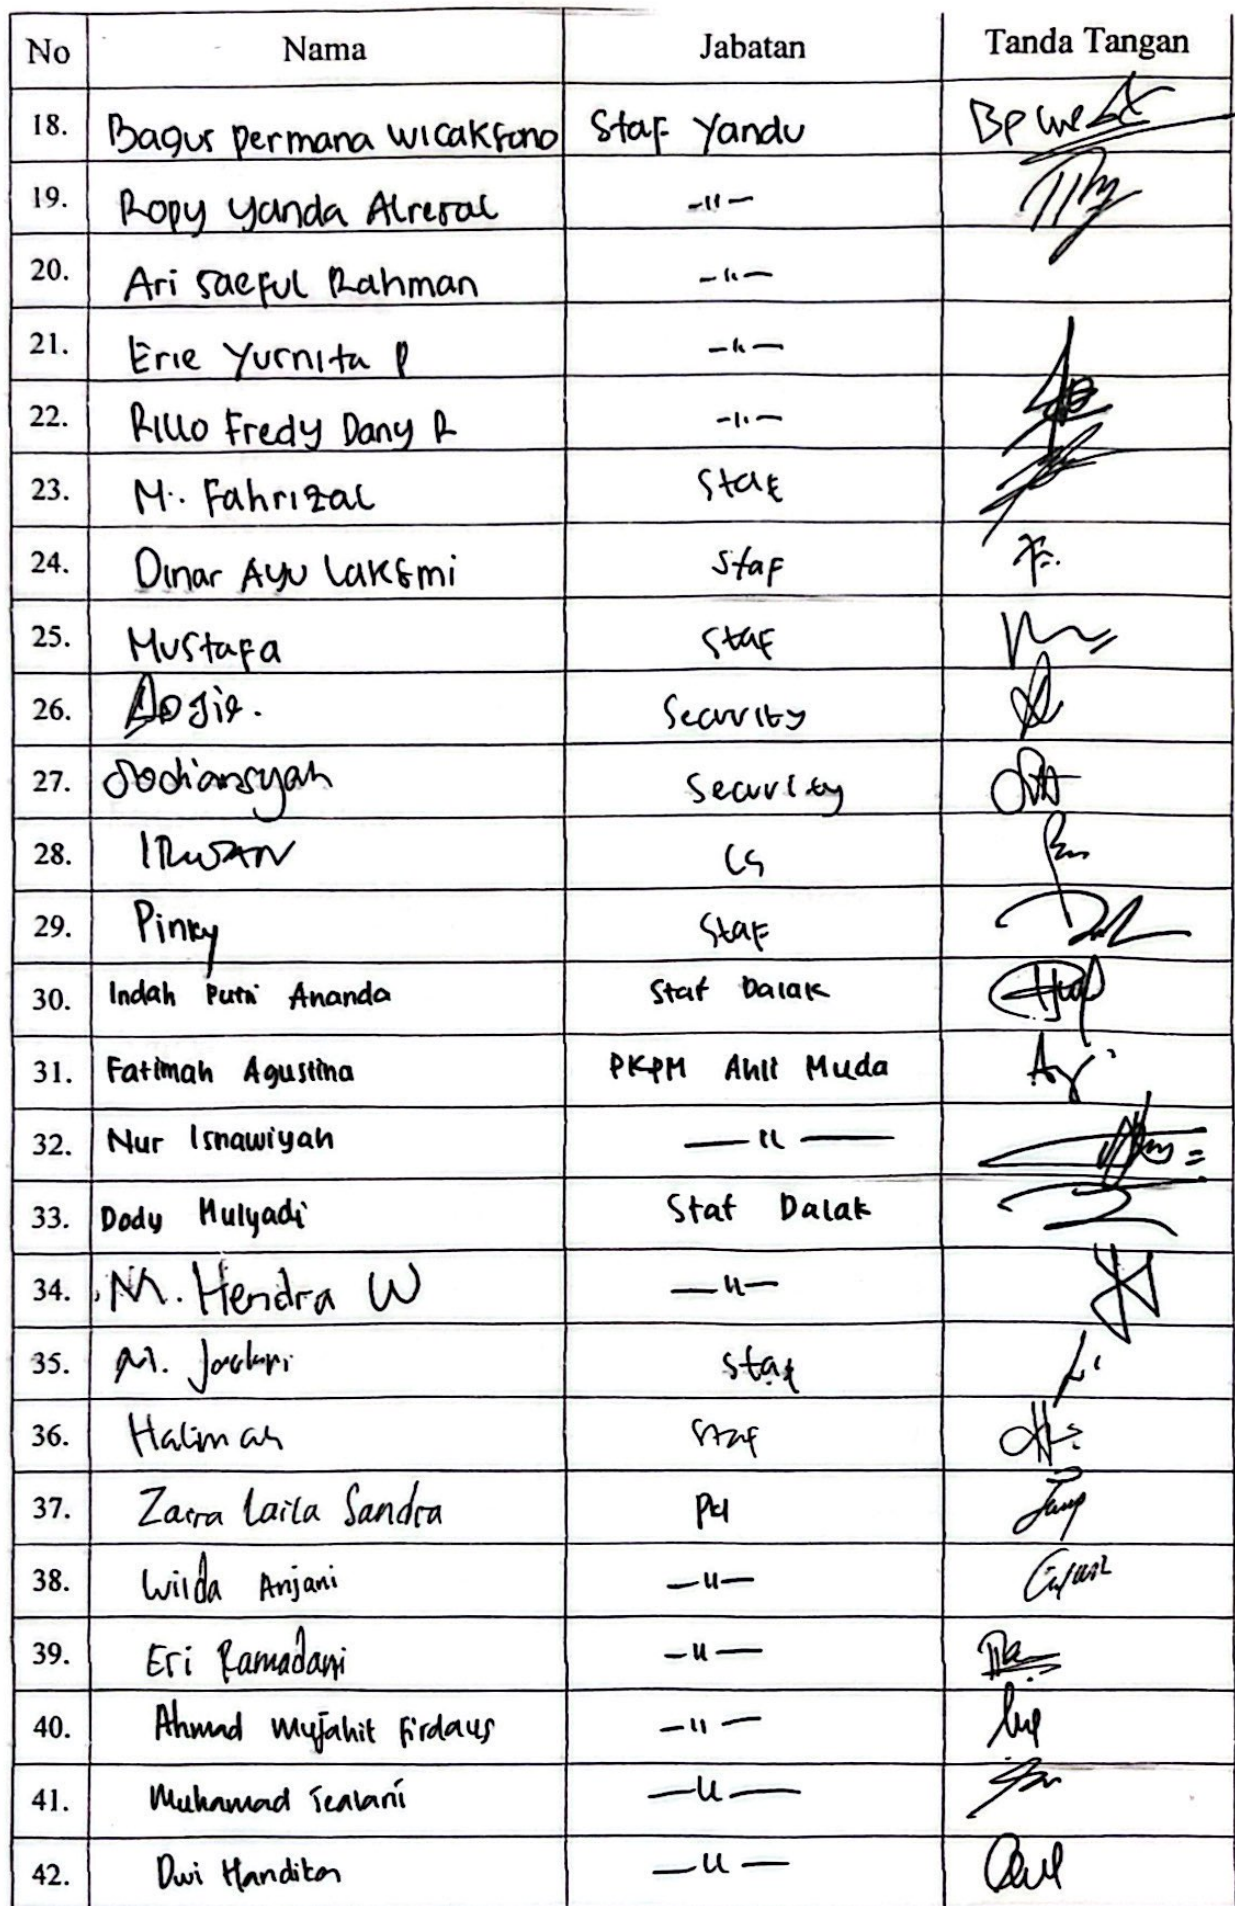 No Nama Jabatan Tanda Tangan
18. Bagus permana wicaksono Staf Yandu
19. Ropy yanda Alrezal -〃-
20. Ari saeful Rahman -〃-
21. Erie Yurnita P -〃-
22. Rillo Fredy Dany R -〃-
23. M. Fahrizal Staf
24. Dinar Ayu Laksmi Staf
25. Mustafa Staf
26. Security
27. Security
28. IRWAN CS
29. Pinky Staf
30. Indah Putri Ananda Staf Dalak
31. Fatimah Agustina PKPM Ahli Muda
32. Nur Isnawiyah -〃-
33. Dody Mulyadi Staf Dalak
34. M. Hendra W -〃-
35. M. Staf
36. Halimah Staf
37. Zarra Laila Sandra Pkl
38. Wilda Anjani -〃-
39. Eri Ramadani -〃-
40. Ahmad Mujahit Firdaus -〃-
41. Muhamad -〃-
42. Dwi Handika -〃-